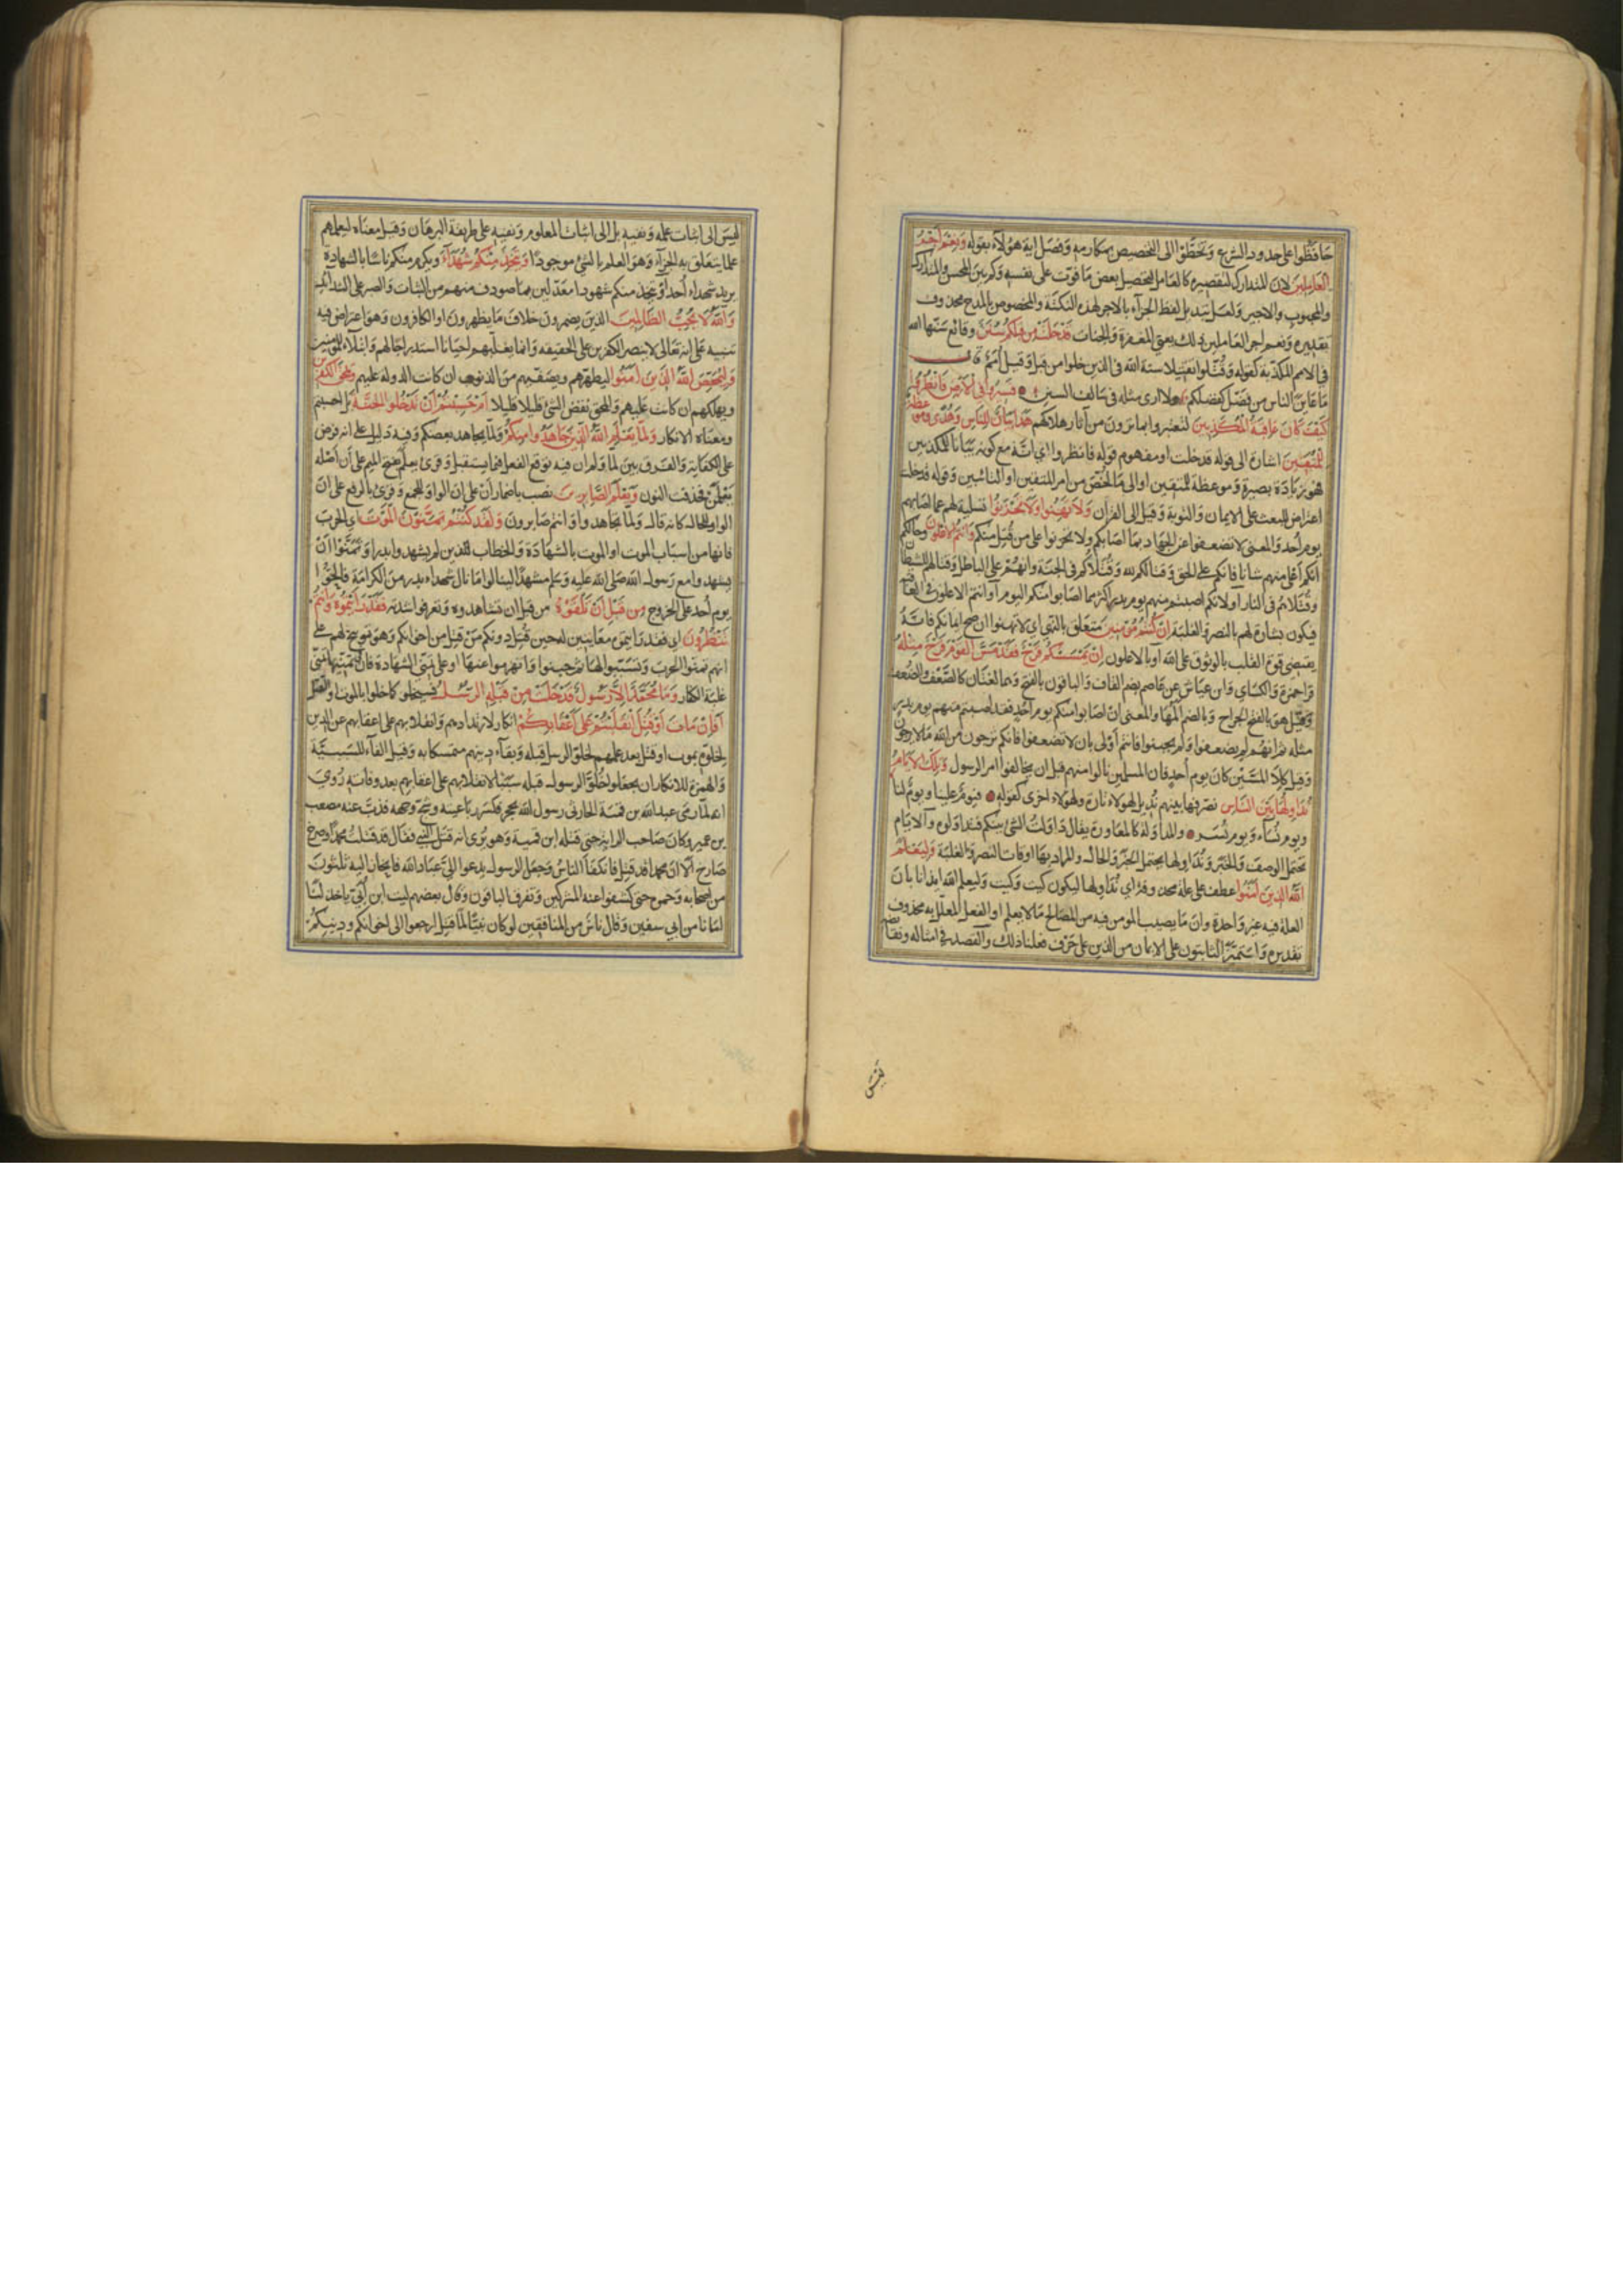 حافظوا على حدود الشرع وتخطوا الى التخصيص بمكارمه وفصل اية هؤلاء بقوله ونعم اجر
العاملين لان المتدارك لتقصيره كالعامل لتحصيل بعض ما فوت على نفسه وكم بين المحسن والمتدارك
والمحبوب والاجير ولعل تبديل لفظ الجزاء بالاجر لهذه النكتة والمخصوص بالمدح محذوف
تقديره ونعم اجر العاملين ذلك يعني المغفرة والجنات قد خلت من قبلكم سنن وقائع سنها الله
في الامم المكذبة كقوله وقتلوا تقتيلا سنة الله في الذين خلوا من قبل وقيل امم قال
ما عاين الناس من فضل كفضلكم ولا ارى مثله في سالف السنن فسيروا في الارض فانظروا
كيف كان عاقبة المكذبين لتعتبروا بما ترون من آثار هلاكهم هذا بيان للناس وهدى وموعظة
للمتقين اشارة الى قوله قد خلت او مفهوم قوله فانظروا اي انه مع كونه بيانا للمكذبين
فهو زيادة بصيرة وموعظة للمتقين او الى ما لخص من امر المتقين او التائبين وقوله قد خلت
اعتراض للبعث على الايمان والتوبة وقيل الى القرآن ولا تهنوا ولا تحزنوا تسلية لهم عما اصابهم
يوم أحد والمعنى لا تضعفوا عن الجهاد بما اصابكم ولا تحزنوا على من قتل منكم وانتم الاعلون وحالكم
انكم اعلى منهم شانا فانكم على الحق وقتالكم لله وقتلاكم في الجنة وانهم على الباطل وقتالهم للشيطان
وقتلاهم في النار او لانكم اصبتم منهم يوم بدر اكثر مما اصابوا منكم اليوم او انتم الاعلون في العاقبة
فيكون بشارة لهم بالنصر والغلبة ان كنتم مؤمنين متعلق بالنهي اي لا تهنوا ان صح ايمانكم فانه
يقتضي قوة القلب بالوثوق على الله او بالاعلون ان يمسسكم قرح فقد مس القوم قرح مثله
قرا حمزة والكسائي وابن عياش عن عاصم بضم القاف والباقون بالفتح وهما لغتان كالضعف والضعف
وقيل هو بالفتح الجراح وبالضم المها والمعنى ان اصابوا منكم يوم احد فقد اصبتم منهم يوم بدر
مثله ثم انهم لم يضعفوا ولم يجبنوا فانتم أولى بان لا تضعفوا فانكم ترجون من الله ما لا يرجون
وقيل كلا المسين كان يوم أحد فان المسلمين نالوا منهم قبل ان يخالفوا امر الرسول وتلك الايام
نداولها بين الناس نصرفها بينهم نديل لهؤلاء تارة ولهؤلاء اخرى كقوله فيوم علينا ويوم لنا
ويوم نساء ويوم نسر والمداولة كالمعاورة يقال داولت الشئ بينكم فتداولوه والايام
تحتمل الوصف والخبر ونداولها يحتمل الخبر والحال والمراد بها اوقات النصر والغلبة وليعلم
الله الذين آمنوا عطف على علة محذوفة اي نداولها ليكون كيت وكيت وليعلم الله ايذانا بان
العلة فيه غير واحدة وان ما يصيب المومن فيه من المصالح ما لا يعلم او الفعل المعلل به محذوف
تقديره وليتميز الثابتون على الايمان من الذين على حرف فعلنا ذلك والقصد في امثاله ونقائضه
ليس الى اثبات علمه ونفيه بل الى اثبات المعلوم ونفيه على طريقة البرهان وقيل معناه ليعلمهم
علما يتعلق به الجزاء وهو العلم بالشئ موجودا ويتخذ منكم شهداء ويكرم منكم ناسا بالشهادة
يريد شهداء أحد او يتخذ منكم شهودا معدلين بما صودف منهم من الثبات والصبر على الشدائد
والله لا يحب الظالمين الذين يضمرون خلاف ما يظهرون او الكافرون وهو اعتراض فيه
تنبيه على انه تعالى لا ينصر الكفرين على الحقيقه وانما يغلبهم احيانا استدراجا لهم وابتلاء للمومنين
وليمحص الله الذين آمنوا ليطهرهم ويصفيهم من الذنوب ان كانت الدولة عليهم ويمحق الكفرين
ويهلكهم ان كانت عليهم والمحق نقض الشئ قليلا قليلا ام حسبتم أن تدخلوا الجنة بل احسبتم
ومعناه الانكار ولما يعلم الله الذين جاهدوا منكم ولما يجاهد بعضكم وفيه دليل على انه فرض
على الكفاية والفرق بين لما ولم ان فيه توقع الفعل فيما يستقبل وقرئ يعلم بفتح الميم على أن اصله
يعلمن فحذفت النون ويعلم الصابرين نصب باضمار أن على ان الواو للجمع وقرئ بالرفع على ان
الواو للحال كانه قال ولما تجاهدوا وانتم صابرون ولقد كنتم تمنون الموت اي الحرب
فانها من اسباب الموت او الموت بالشهادة والخطاب للذين لم يشهدوا بدرا وتمنوا أن
يشهدوا مع رسول الله صلى الله عليه وسلم مشهدا لينالوا ما نال شهداء بدر من الكرامة فالحوا
يوم أحد على الخروج من قبل أن تلقوه من قبل ان تشاهدوه وتعرفوا شدته فقد رايتموه وانتم
تنظرون اي فقد رايتموه معاينين له حين قتل دونكم من قتل من اخوانكم وهو توبيخ لهم على
انهم تمنوا الحرب وتسببوا لها ثم جبنوا وانهزموا عنها او على تمني الشهادة فان في تمنيها تمني
غلبة الكفار وما محمد الا رسول قد خلت من قبله الرسل فسيخلو كما خلوا بالموت او القتل
أفإن مات أو قتل انقلبتم على أعقابكم انكار لارتدادهم وانقلابهم على اعقابهم عن الدين
لخلوه بموت او قتل بعد علمهم بخلو الرسل قبله وبقاء دينهم متمسكا به وقيل الفاء للسببية
والهمزة للانكار ان يجعلوا خلو الرسول قبله سببا لانقلابهم على اعقابهم بعد وفاته روي
انه لما رمى عبد الله بن قمئة الحارثي رسول الله بحجر فكسر رباعيته وشج وجهه فذب عنه مصعب
بن عمير وكان صاحب الراية حتى قتله ابن قمية وهو يرى انه قتل النبي فقال قد قتلت محمدا وصرخ
صارخ ألا ان محمدا قد قتل فانكفأ الناس وجعل الرسول يدعو الي عباد الله فانحاز اليه ثلثون
من اصحابه وحموه حتى كشفوا عنه المشركين وتفرق الباقون وقال بعضهم ليت ابن أبي ياخذ لنا
امانا من ابي سفين وقال ناس من المنافقين لو كان نبيا لما قتل ارجعوا الى اخوانكم ودينكم